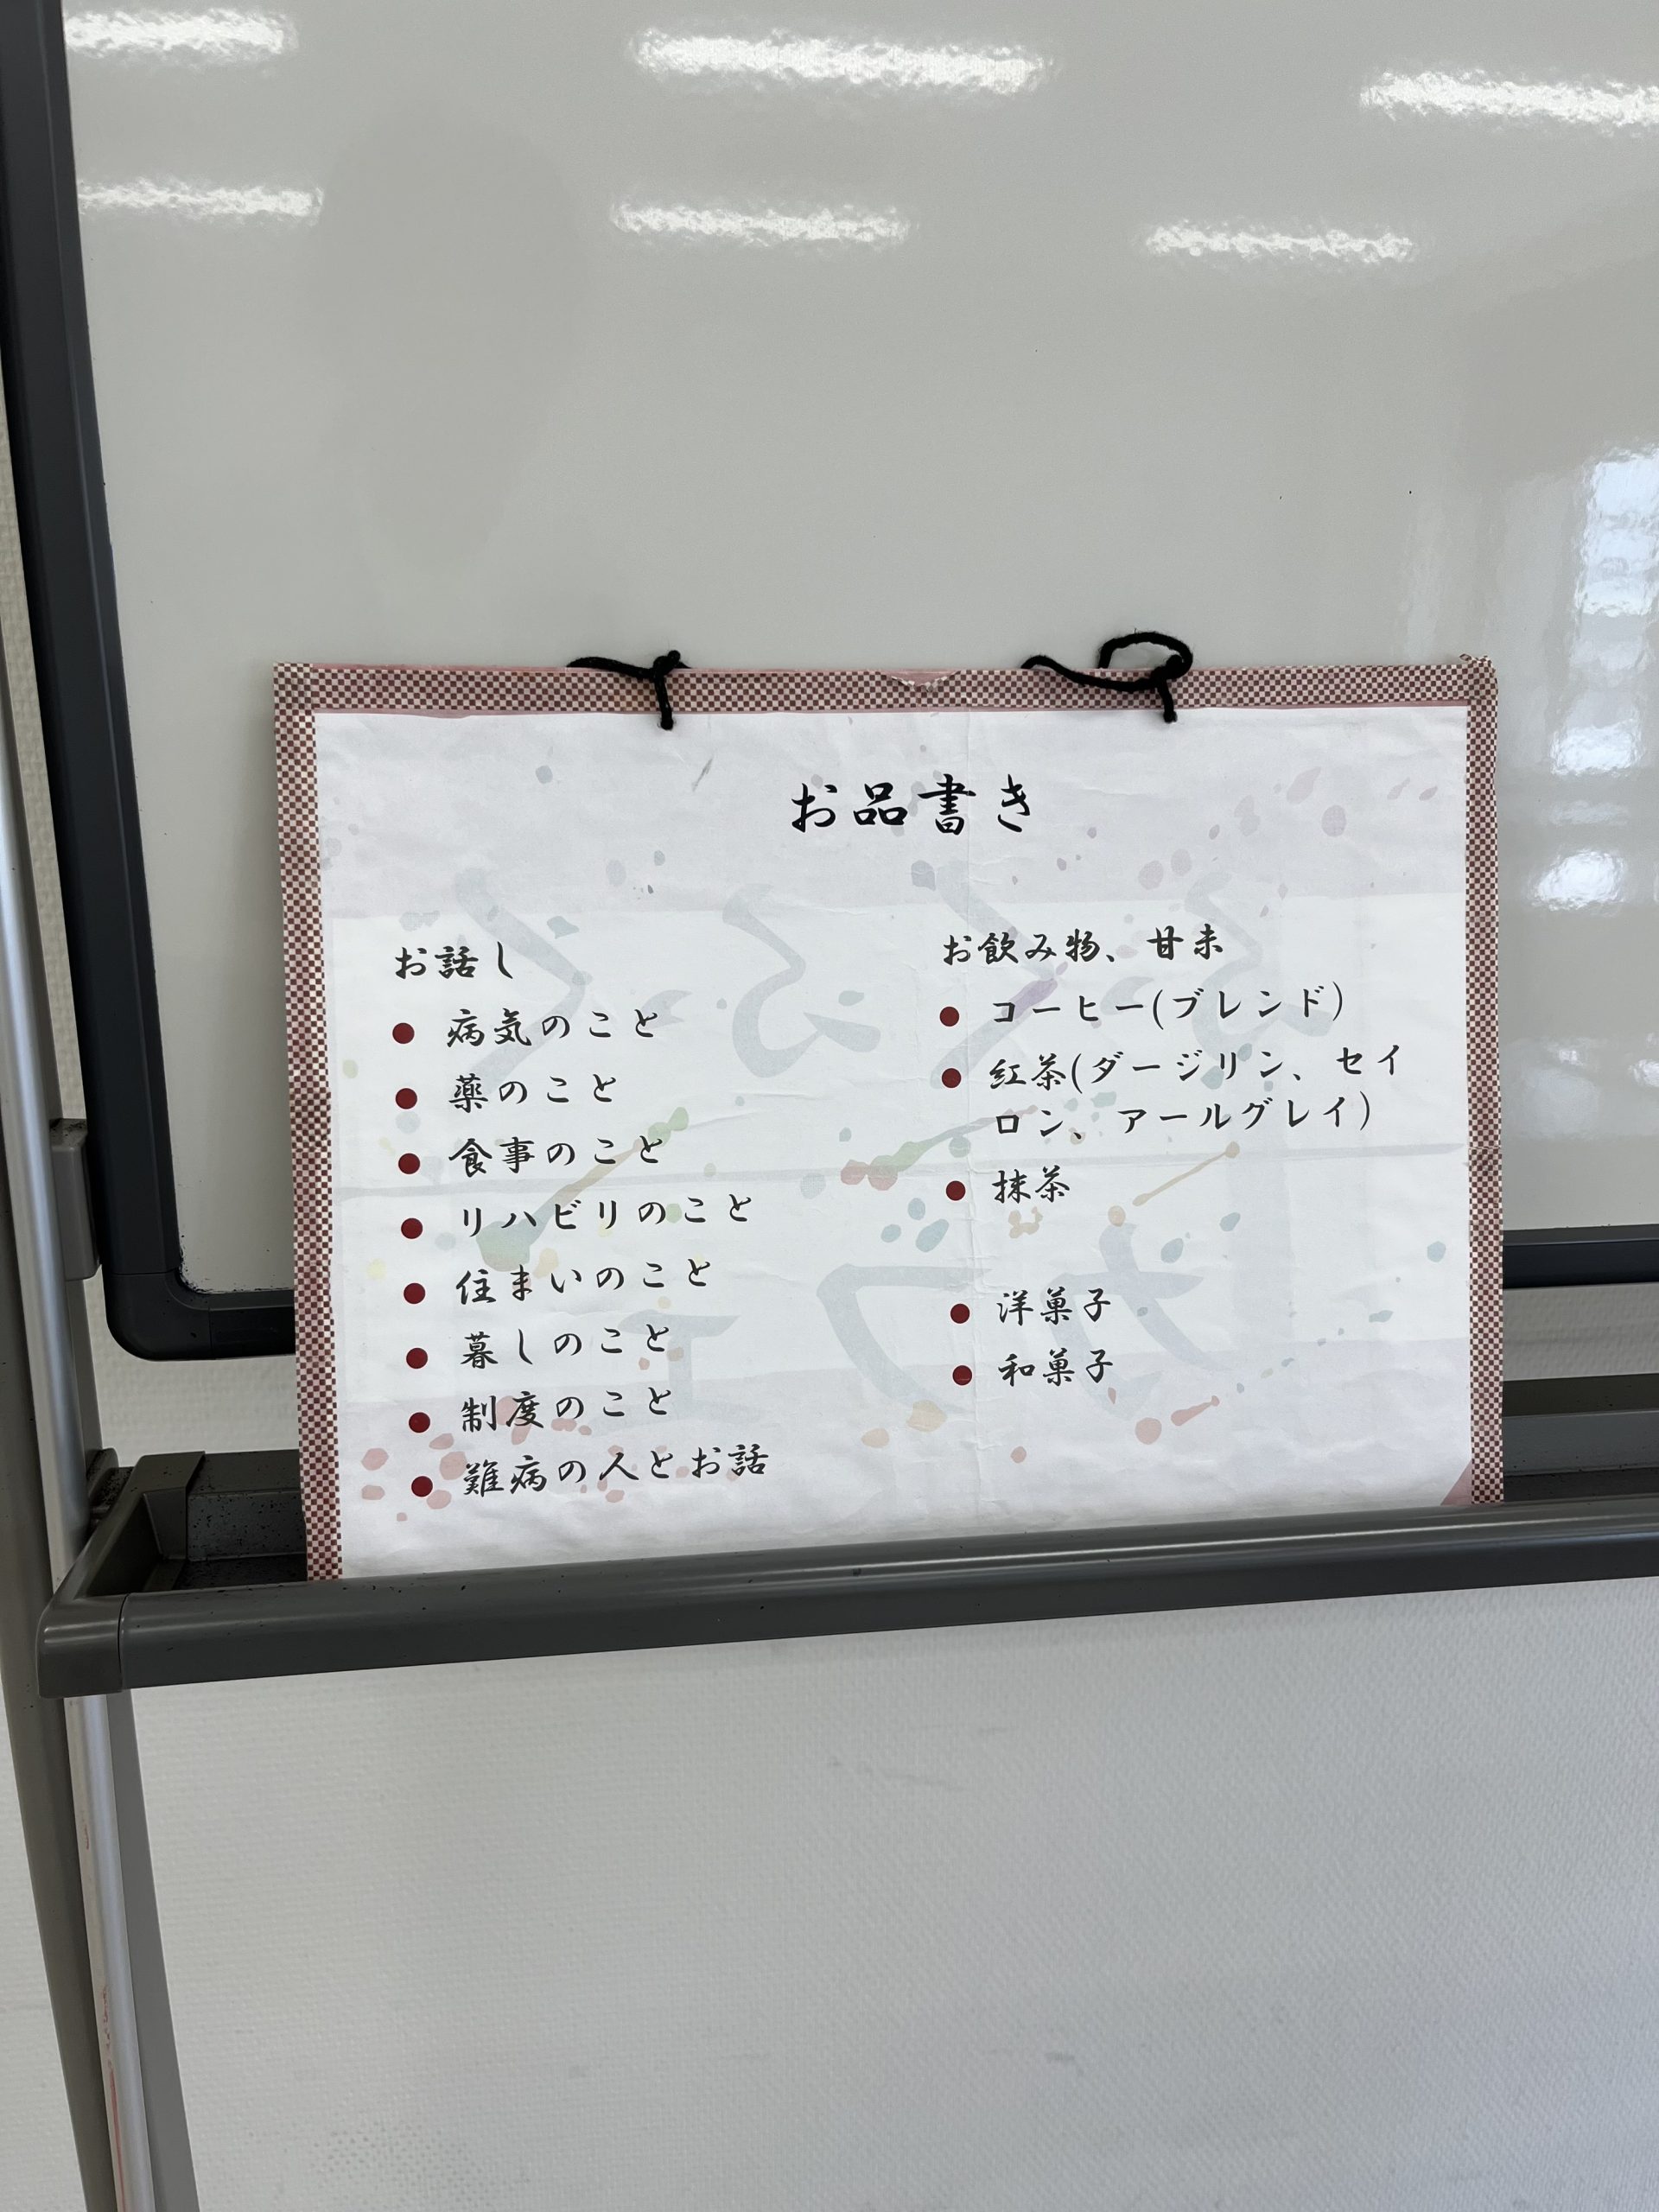 お品書き
お話し
病気のこと
薬のこと
食事のこと
リハビリのこと
住まいのこと
暮しのこと
制度のこと
難病の人とお話
お飲み物、甘未
コーヒー(ブレンド)
紅茶(ダージリン、セイ
ロン、アールグレイ)
抹茶
洋菓子
和菓子